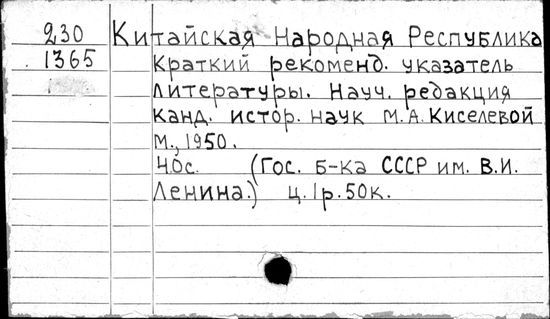 230 Китайская Народная Республика
1365 Краткий рекоменд. указатель
литературы. Науч. редакция
канд. истор. наук М.А. Киселевой
М., 1950.
40с. (Гос. Б-ка СССР им. В.И.
Ленина.) ц. 1р. 50к.